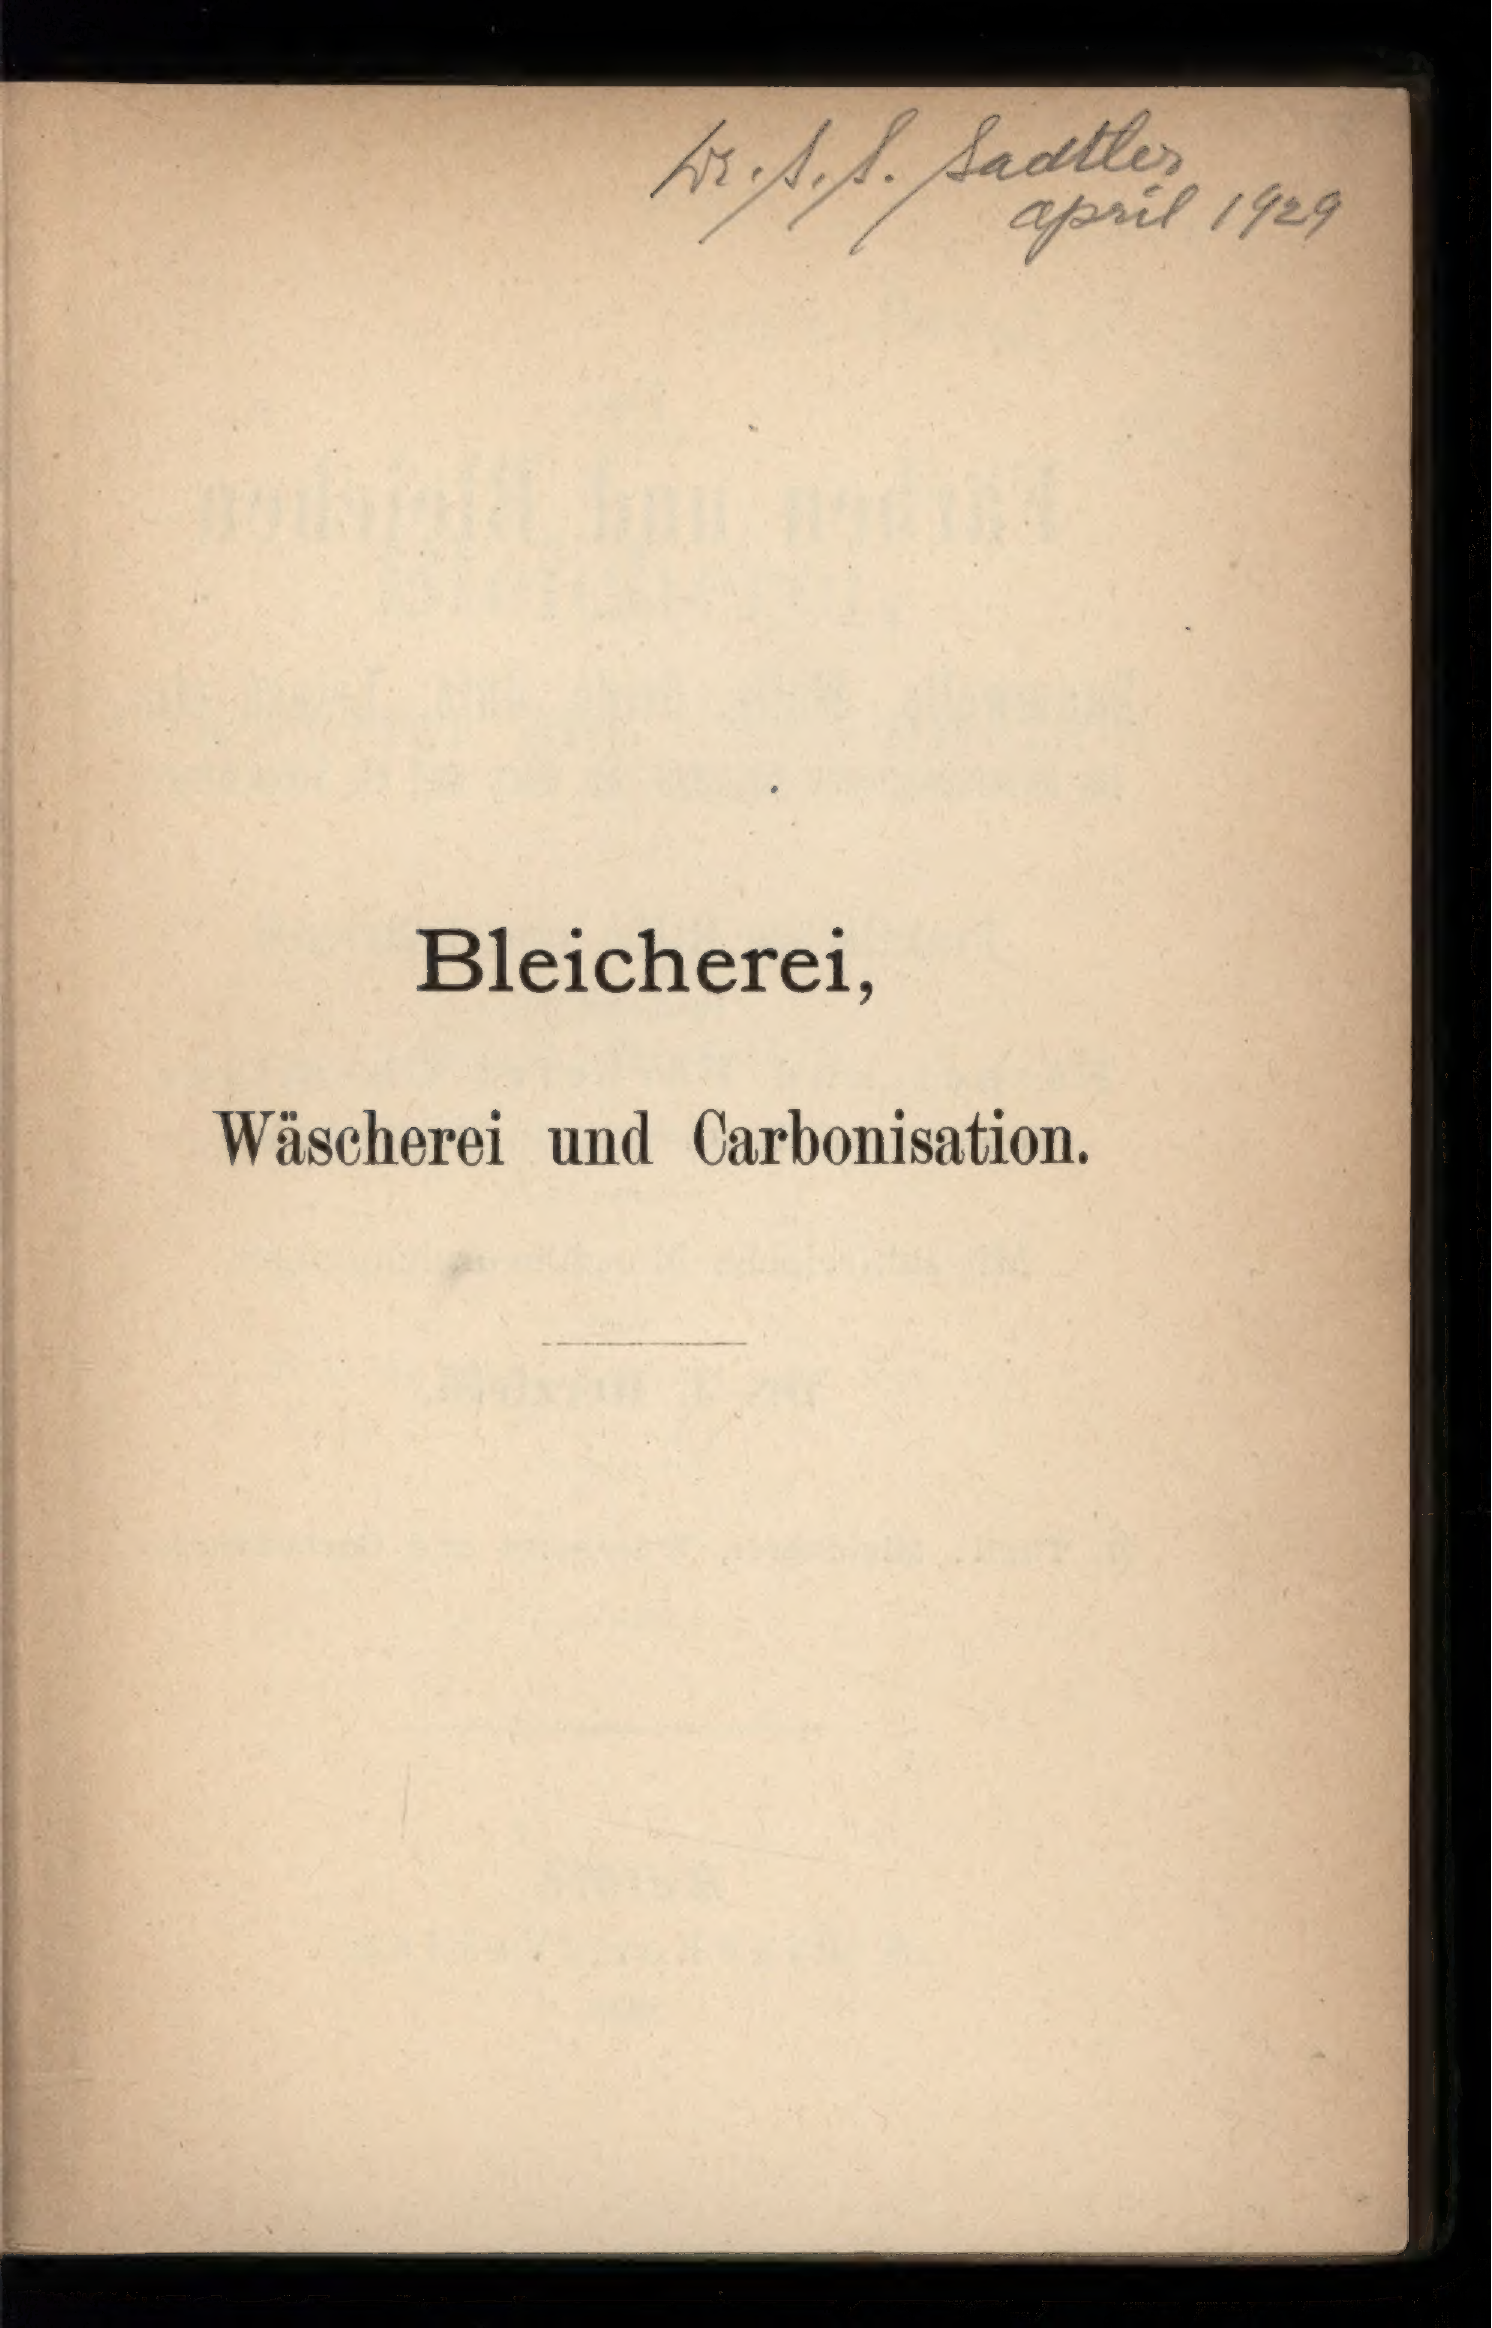 Dr. S. S. Sadtler
april 1929
Bleicherei,
Wäscherei und Carbonisation.